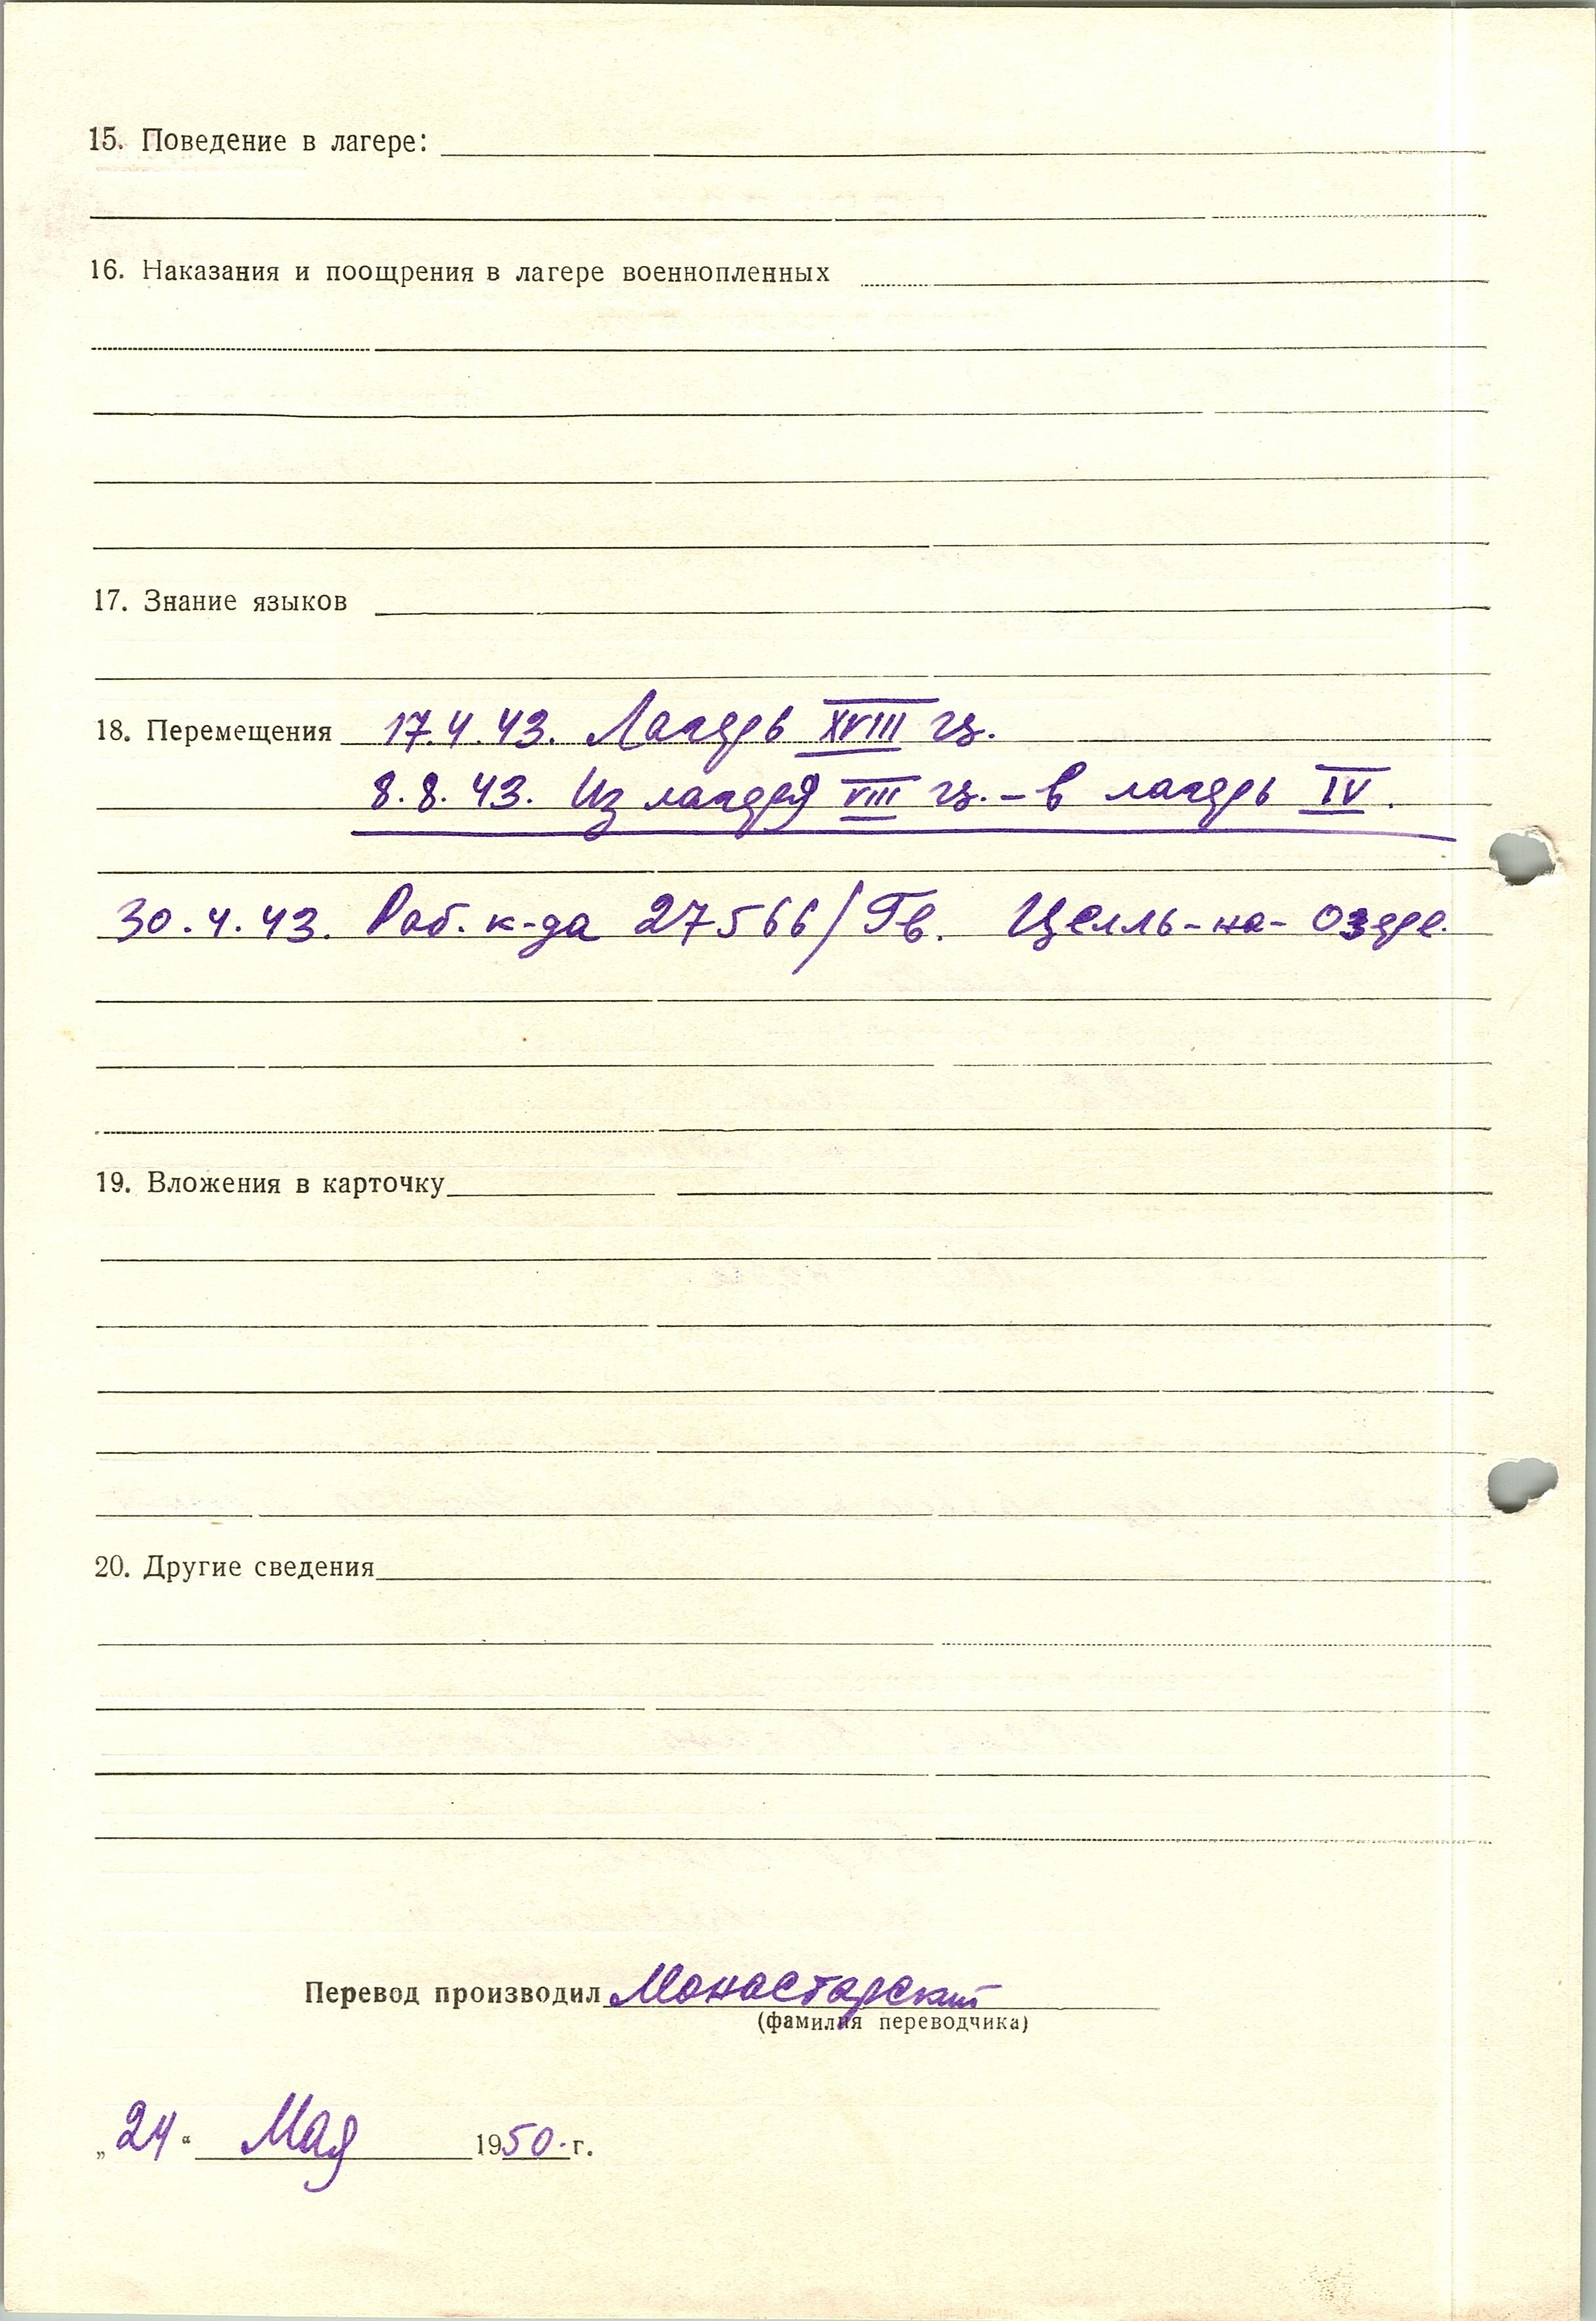 15. Поведение в лагере:
16. Наказания и поощрения в лагере военнопленных
17. Знание языков
18. Перемещения 17.4.43. Лагерь XVIII ц.
8.8.43. Из лагеря VIII ц. – в лагерь IV.
30.4.43. Раб. к-да 27566/Гв. Целль-на-Озере.
19. Вложения в карточку
20. Другие сведения
Перевод производил Монастарский
(фамилия переводчика)
„24“ Мая 1950.г.